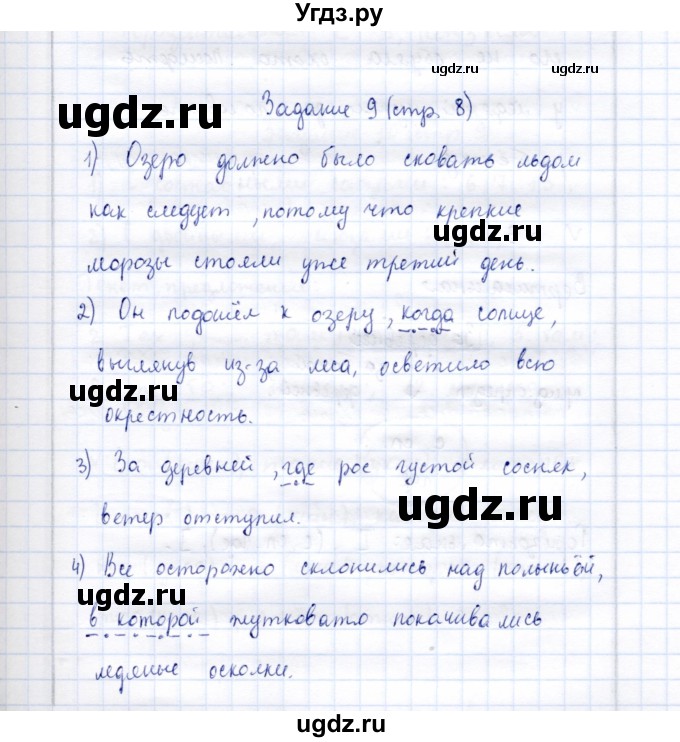 Угдз.ру
ugdz.ru
ugdz.ru
Задание 9 (стр. 8)
1) Озеро должно было сковать льдом
как следует, потому что крепкие
ugdz.ru
морозы стояли уже третий день.
2) Он подошёл к озеру, когда солнце,
выглянув из-за леса, осветило всю
ugdz.ru
окрестность.
3) За деревней, где рос густой сосняк,
ветер отступил.
ugdz.ru
4) Все осторожно склонились над полыньёй,
ugdz.ru
в которой жутковато покачивались
ледяные осколки.
ugdz.ru